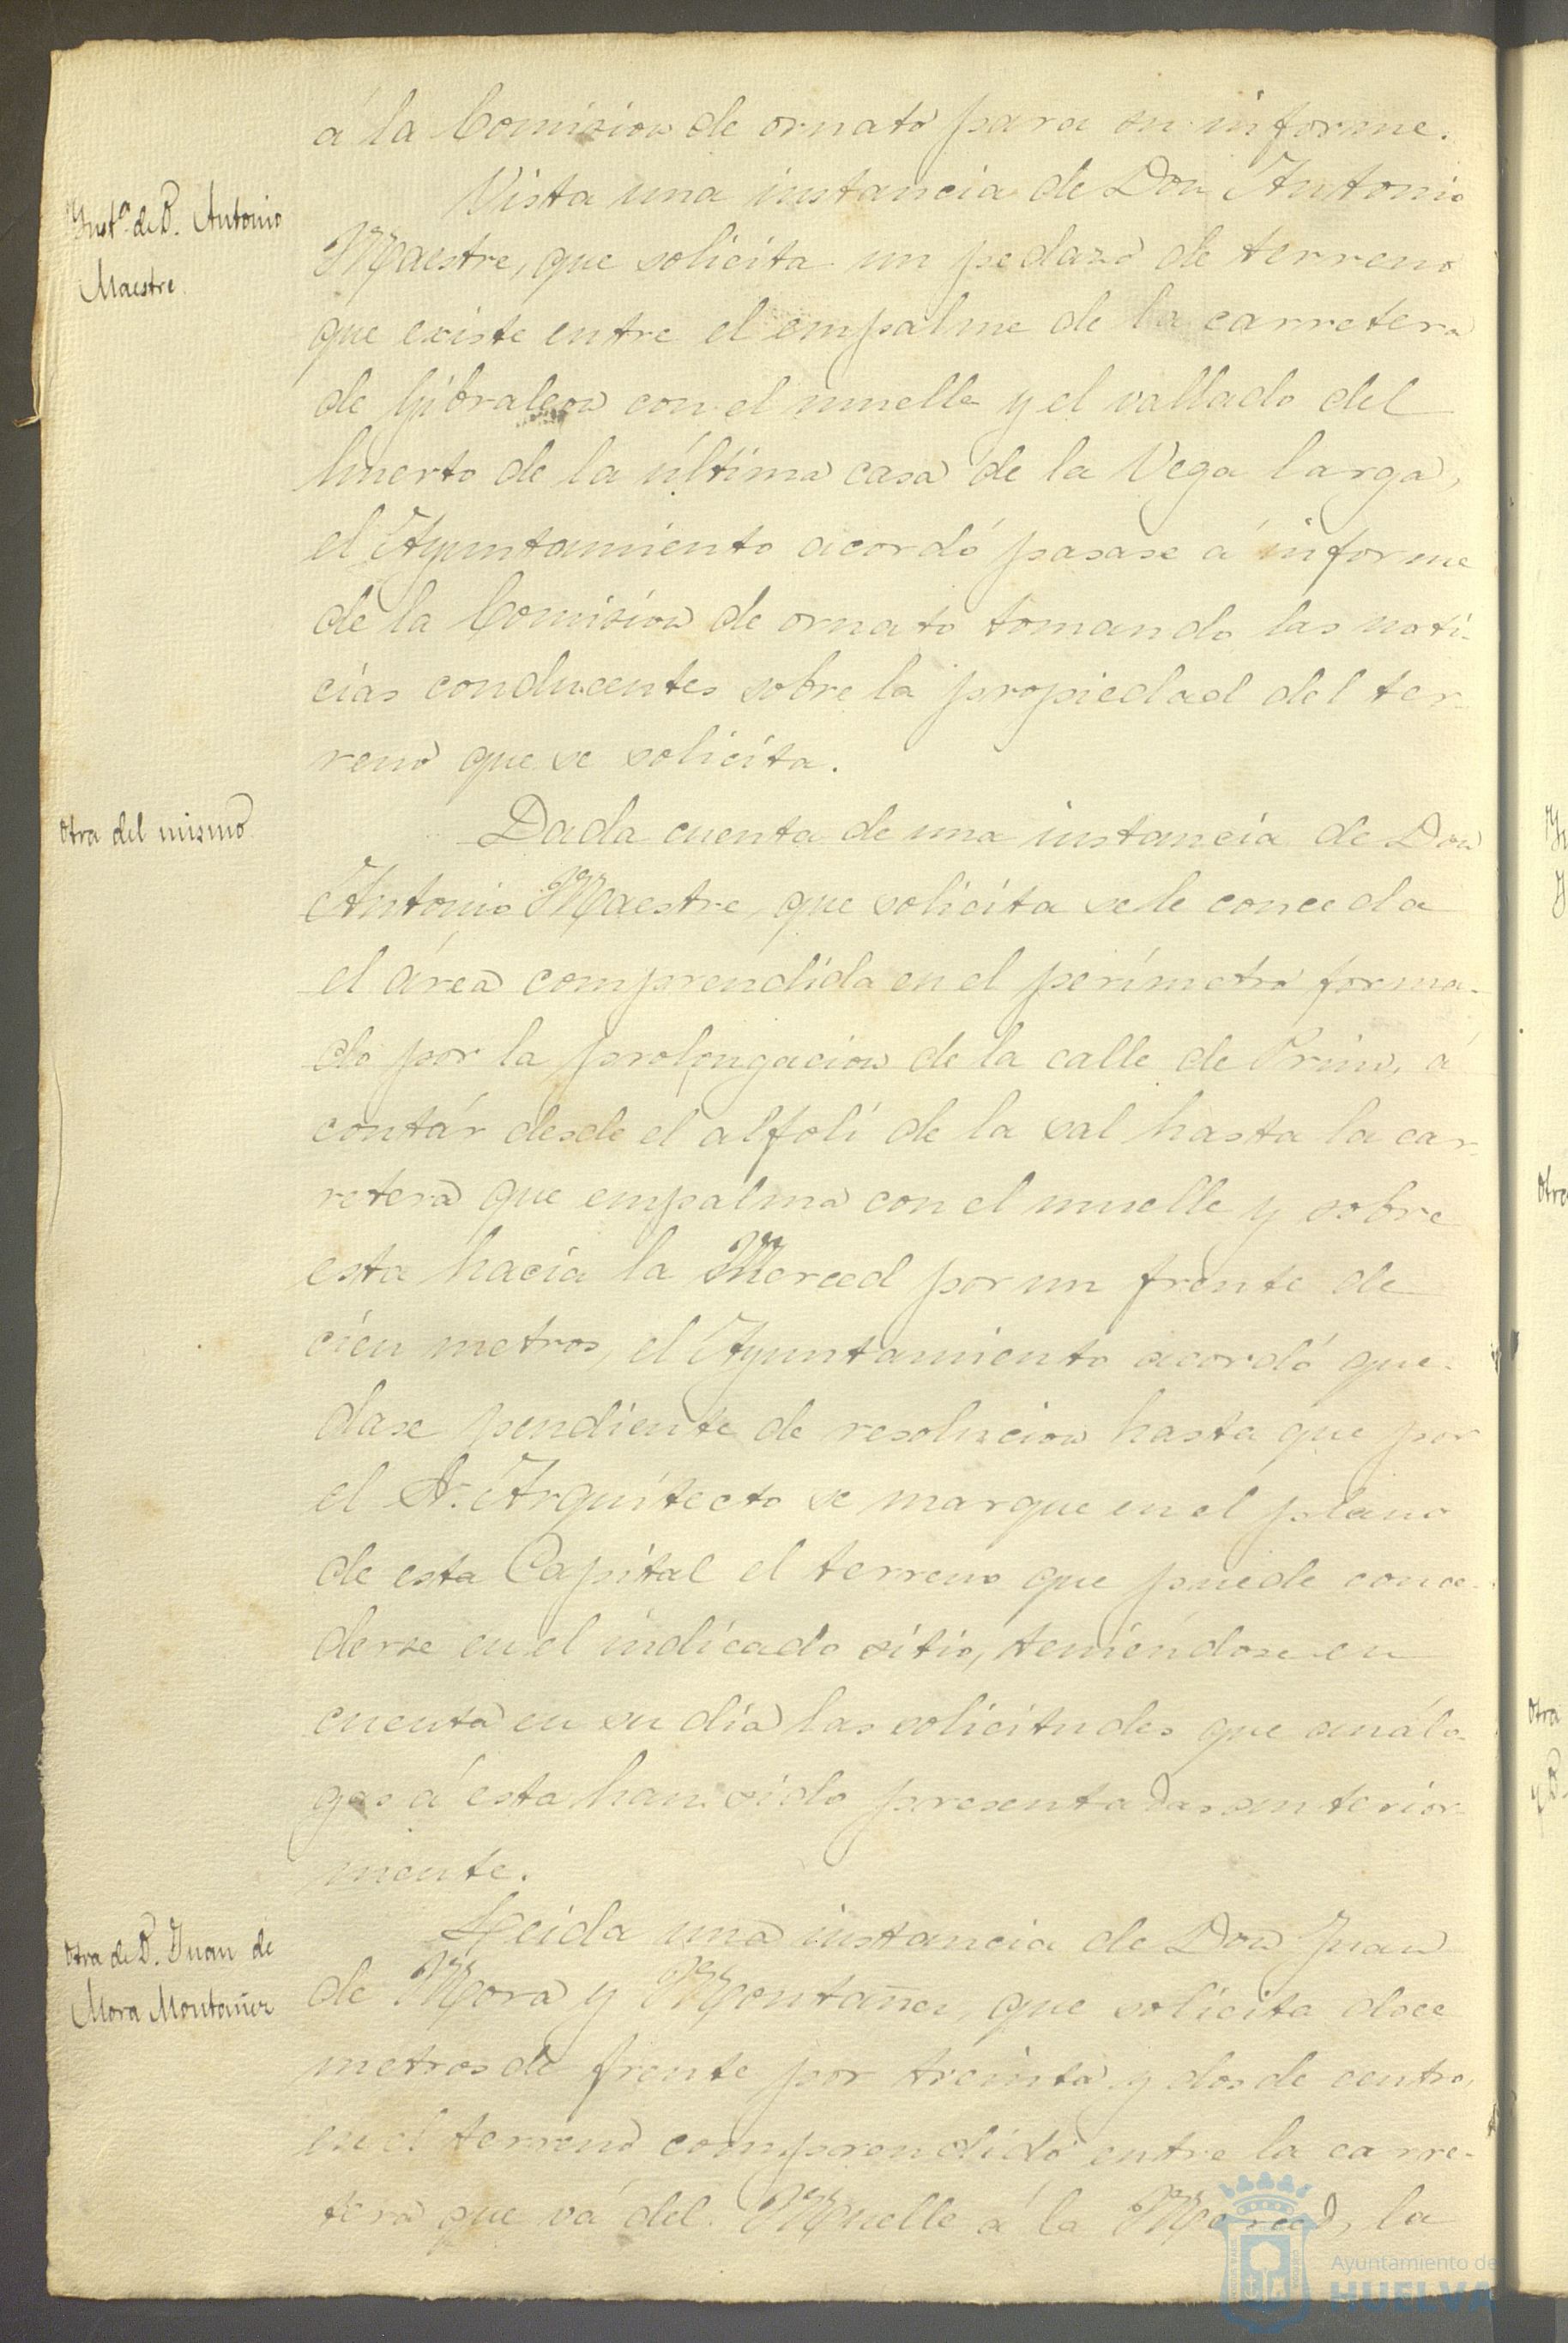 á la Comision de ornato para su informe.
Inst.ª de D. Antonio
Maestre
Vista una instancia de Don Antonio
Maestre, que solicita un pedazo de terreno
que existe entre el empalme de la carretera
de Gibraleon con el muelle y el vallado del
huerto de la última casa de la Vega larga,
el Ayuntamiento acordó pasase á informe
de la Comision de ornato tomando las noti-
cias conducentes sobre la propiedad del ter-
reno que se solicita.
Otra del mismo
Dada cuenta de una instancia de Don
Antonio Maestre, que solicita se le conceda
el área comprendida en el perímetro forma-
do por la prolongacion de la calle de Prim, á
contár desde el alfolí de la sal hasta la car-
retera que empalma con el muelle y sobre
esta hacia la Merced por un frente de
cien metros, el Ayuntamiento acordó que-
dase pendiente de resolucion hasta que por
el Sr. Arquitecto se marque en el plano
de esta Capital el terreno que puede conce-
derse en el indicado sitio, teniéndose en
cuenta en su día las solicitudes que análo-
gas á esta han sido presentadas anterior-
mente.
Otra de D. Juan de
Mora Montañez
Leida una instancia de Don Juan
de Mora y Montañez, que solicita doce
metros de frente por treinta y dos de centro,
en el terreno comprendido entre la carre-
tera que vá del Muelle á la Merced, la
Ayuntamiento de
HUELVA